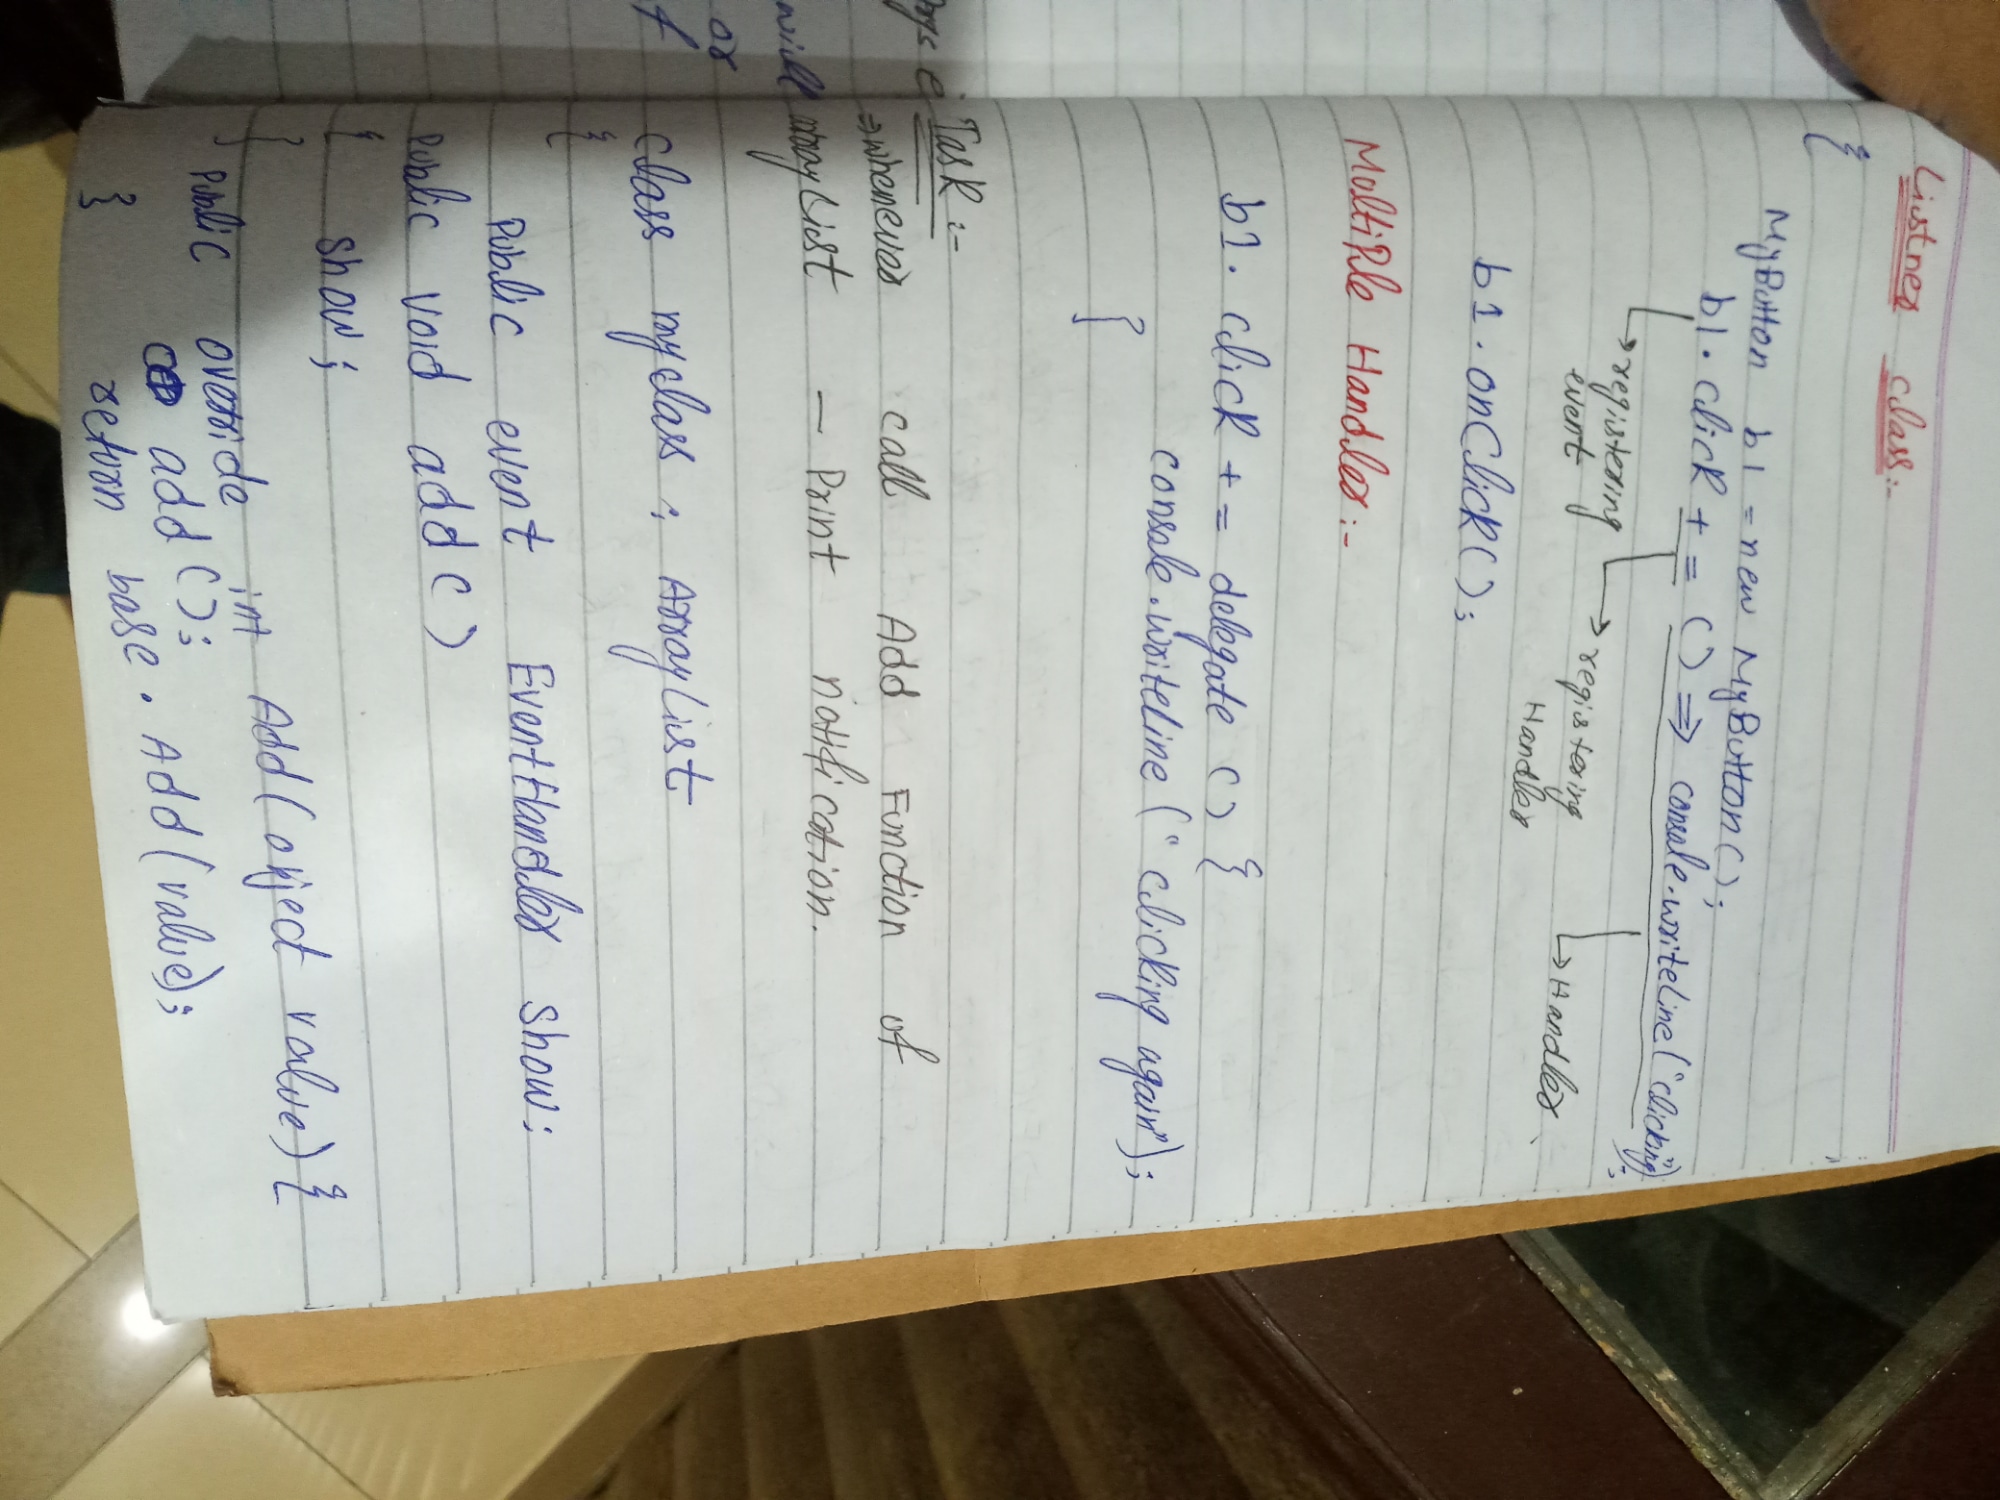 Listner class:-
{
MyButton b1 = new MyButton();
b1. click += () => console.writeLine("clicking");
registering event
registering Handler
Handler
b1. onClick();
MultiPle Handler:-
b1. click += delegate () {
console.writeLine (" clicking again");
}
Task :-
=> whenever call Add Function of
arrayList — Print notification.
class myclass : ArrayList
{
Public event EventHandler show;
Public void add()
{ show;
}
Public override int Add(object value) {
add();
return base. Add(value);
}
will
or
f